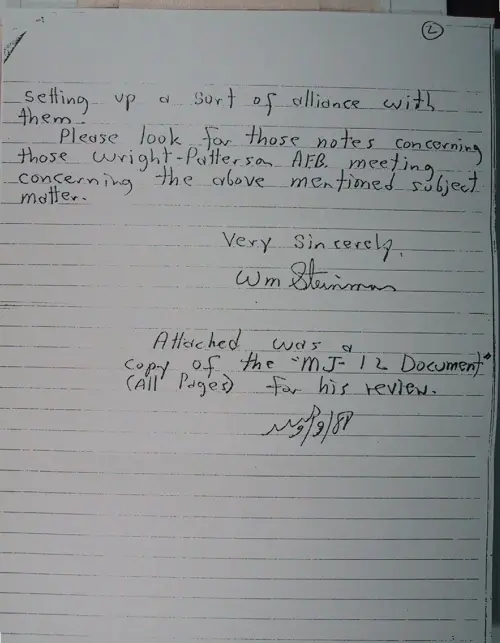 2
setting up a sort of alliance with
them.
Please look for those notes concerning
those Wright-Patterson AFB. meeting
concerning the above mentioned subject
matter.
Very Sincerely,
Wm Steinman
Attached was a
copy of the "MJ-12 Document"
(All Pages) for his review.